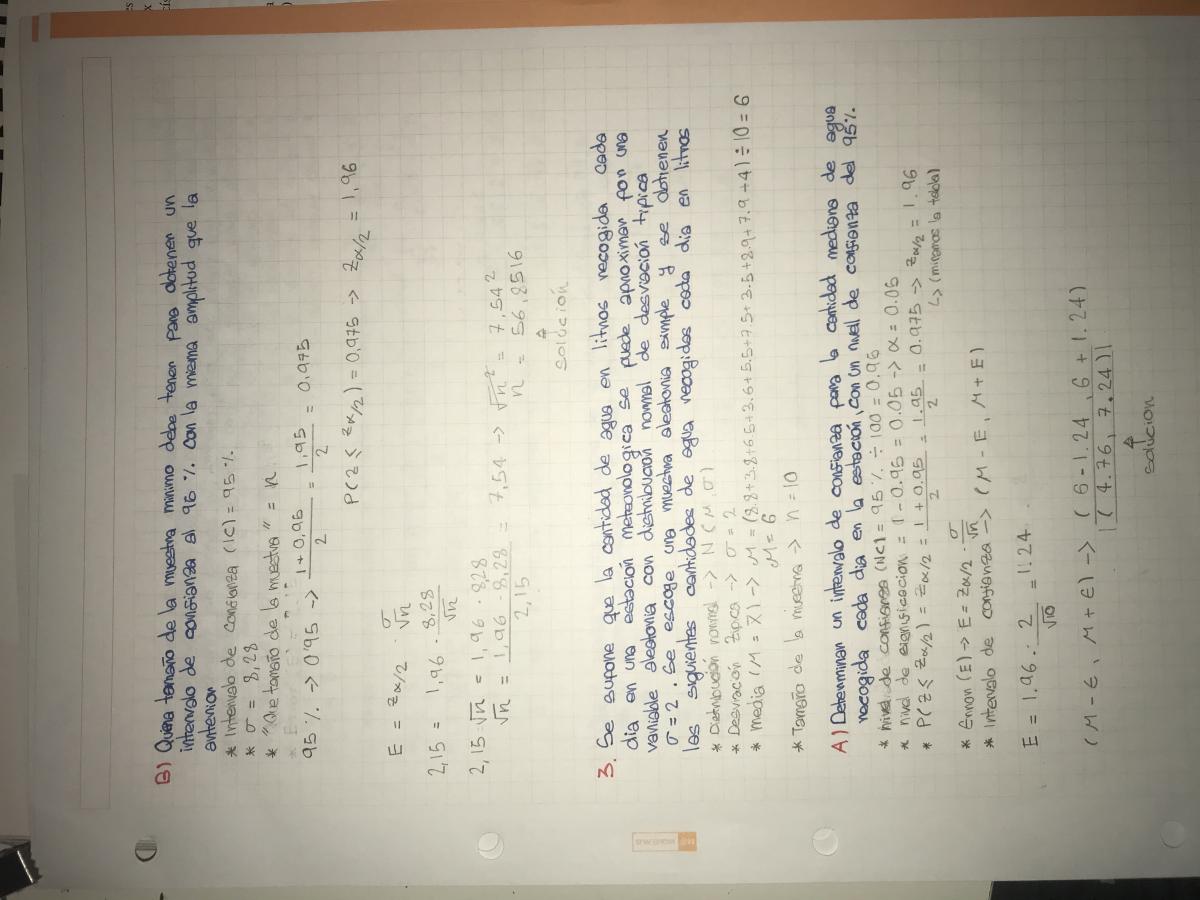 B) Quena tamaño de la muestra minimo debe tenen para obtenen un
intenvalo de confianza al 95 %. Con la misma amplitud que la
antenion
* Intervalo de Confianza (IC) = 95 %.
* σ = 8,28
* "Que tamaño de la muestra" = n
95 %. -> 0'95 -> 1 + 0,95 / 2 = 1,95 / 2 = 0,975
P(z ≤ zα/2) = 0,975 -> zα/2 = 1,96
E = zα/2 · σ/√n
2,15 = 1,96 · 8,28/√n
2,15·√n = 1,96 · 8,28
√n = 1,96 · 8,28 / 2,15 = 7,54 -> √n² = 7,54²
n = 56,8516
solución
3. Se supone que la cantidad de agua en litnos recogida cada
dia en una estación meteonologica se puede apnoximan pon una
vaniable aleatonia con distnibución nonmal de desviación tipica
σ = 2. Se escoge una muestna aleatonia simple y se obtienen
las siguientes cantidades de agua recogidas cada dia en litnos
* Distnibución nonmal -> N(M, σ)
* Desviación Zipca -> σ = 2
* media (M = x̄) -> M = (8.8+3.8+6.5+3.6+5.5+7.5+3.5+8.9+7.9+4) ÷ 10 = 6
M = 6
* Tamaño de la muestra -> n = 10
A) Detenminan un intenvalo de confianza pana la cantidad mediana de agua
recogida cada dia en la estación, con un nivel de confianza del 95%.
* nivel de confianza (NC) = 95 % ÷ 100 = 0.95
* nivel de signisicacion = 1 - 0.95 = 0.05 -> α = 0.05
* P(z ≤ zα/2) = zα/2 = 1 + 0.95 / 2 = 1.95 / 2 = 0.975 -> zα/2 = 1.96
↳ (minamos la tabla)
* Ennon (E) -> E = zα/2 · σ/√n
* Intenvalo de confianza -> (M - E, M + E)
E = 1.96 · 2/√10 = 1.24
(M - E, M + E) -> (6 - 1.24, 6 + 1.24)
(4.76, 7.24)
solucion